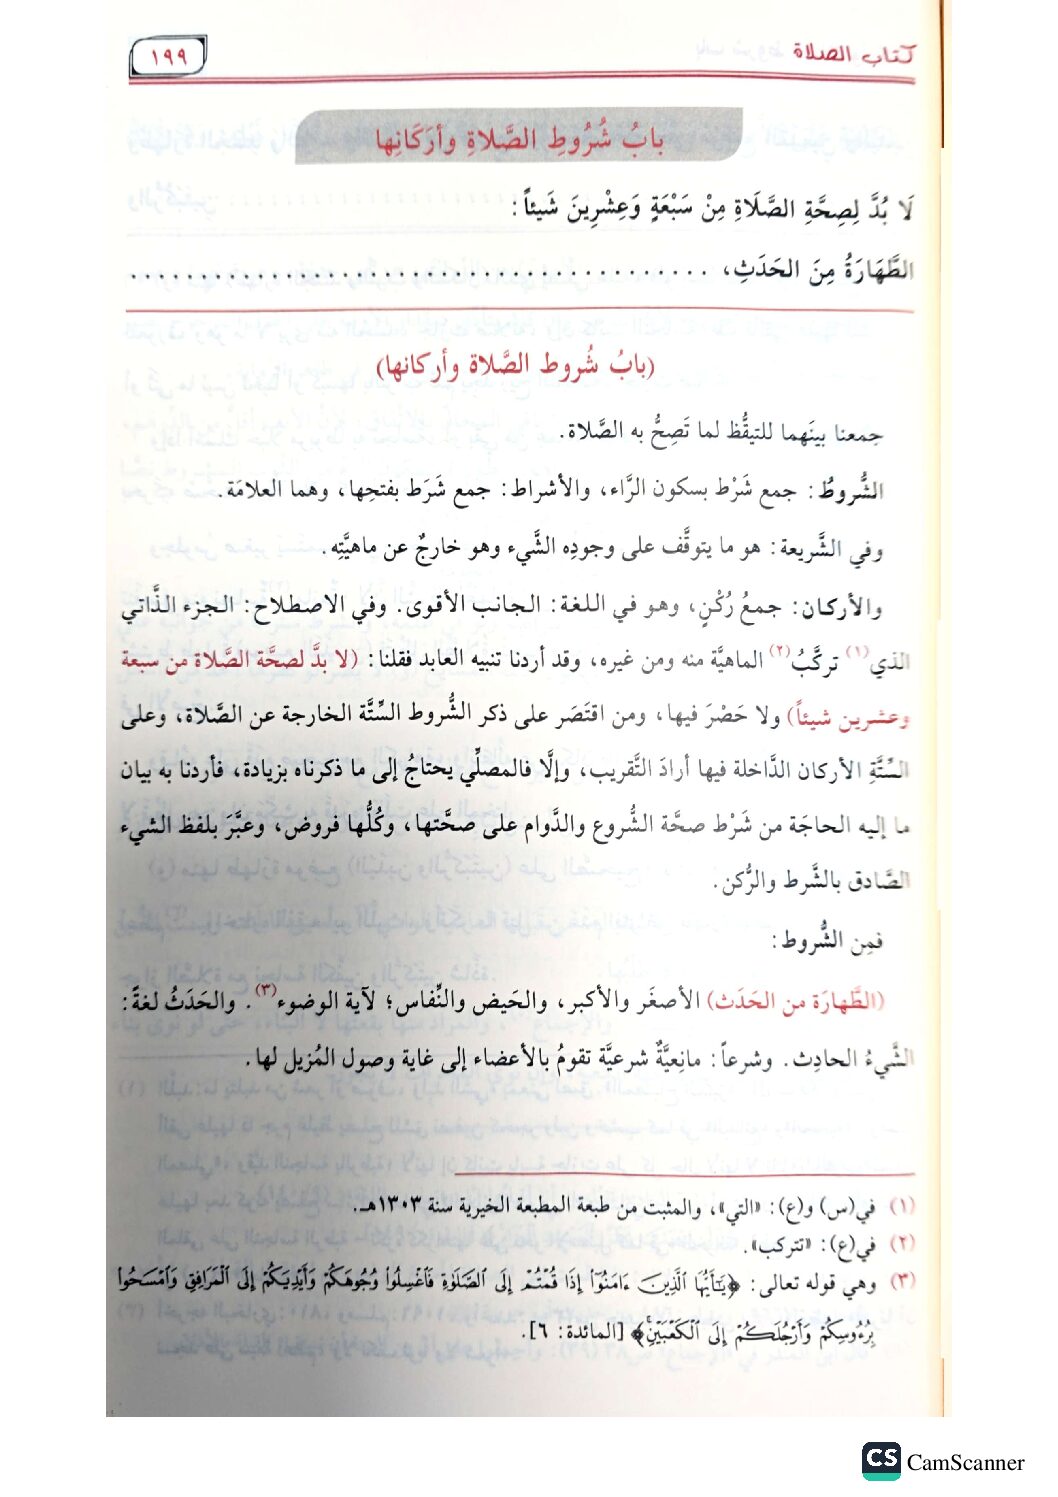 كتاب الصلاة
١٩٩
بابُ شُرُوطِ الصَّلاةِ وأركَانِها
لَا بُدَّ لِصِحَّةِ الصَّلَاةِ مِنْ سَبْعَةٍ وَعِشْرِينَ شَيئاً:
الطَّهَارَةُ مِنَ الحَدَثِ، ........................................
(بابُ شُروط الصَّلاة وأركانها)
جمعنا بينَهما للتيقُّظ لما تَصِحُّ به الصَّلاة.
الشُّروطُ: جمع شَرْط بسكون الرَّاء، والأشراط: جمع شَرَط بفتحِها، وهما العلامَة.
وفي الشَّريعة: هو ما يتوقَّف على وجودِه الشَّيء وهو خارجٌ عن ماهيَّتِه.
والأركان: جمعُ رُكْنٍ، وهو في اللغة: الجانب الأقوى. وفي الاصطلاح: الجزء الذَّاتي
الذي(١) تركَّبُ(٢) الماهيَّة منه ومن غيره، وقد أردنا تنبيه العابد فقلنا: (لا بدَّ لصحَّة الصَّلاة من سبعة
وعشرين شيئاً) ولا حَصْرَ فيها، ومن اقتَصَر على ذكر الشُّروط السِّتَّة الخارجة عن الصَّلاة، وعلى
السِّتَّةِ الأركان الدَّاخلة فيها أرادَ التَّقريب، وإلَّا فالمصلِّي يحتاجُ إلى ما ذكرناه بزيادة، فأردنا به بيان
ما إليه الحاجَة من شَرْط صحَّة الشُّروع والدَّوام على صحَّتها، وكُلُّها فروض، وعبَّرَ بلفظ الشيء
الصَّادق بالشَّرط والرُّكن.
فمِن الشُّروط:
(الطَّهارَة من الحَدَث) الأصغَر والأكبر، والحَيض والنِّفاس؛ لآية الوضوء(٣). والحَدَثُ لغةً:
الشَّيءُ الحادِث. وشرعاً: مانِعيَّةٌ شرعيَّة تقومُ بالأعضاء إلى غاية وصول المُزيل لها.
(١) في(س) و(ع): «التي»، والمثبت من طبعة المطبعة الخيرية سنة ١٣٠٣هـ.
(٢) في(ع): «تتركب».
(٣) وهي قوله تعالى: ﴿يَٰٓأَيُّهَا ٱلَّذِينَ ءَامَنُوٓاْ إِذَا قُمۡتُمۡ إِلَى ٱلصَّلَوٰةِ فَٱغۡسِلُواْ وُجُوهَكُمۡ وَأَيۡدِيَكُمۡ إِلَى ٱلۡمَرَافِقِ وَٱمۡسَحُواْ
بِرُءُوسِكُمۡ وَأَرۡجُلَكُمۡ إِلَى ٱلۡكَعۡبَيۡنِۚ﴾ [المائدة: ٦].
CS CamScanner